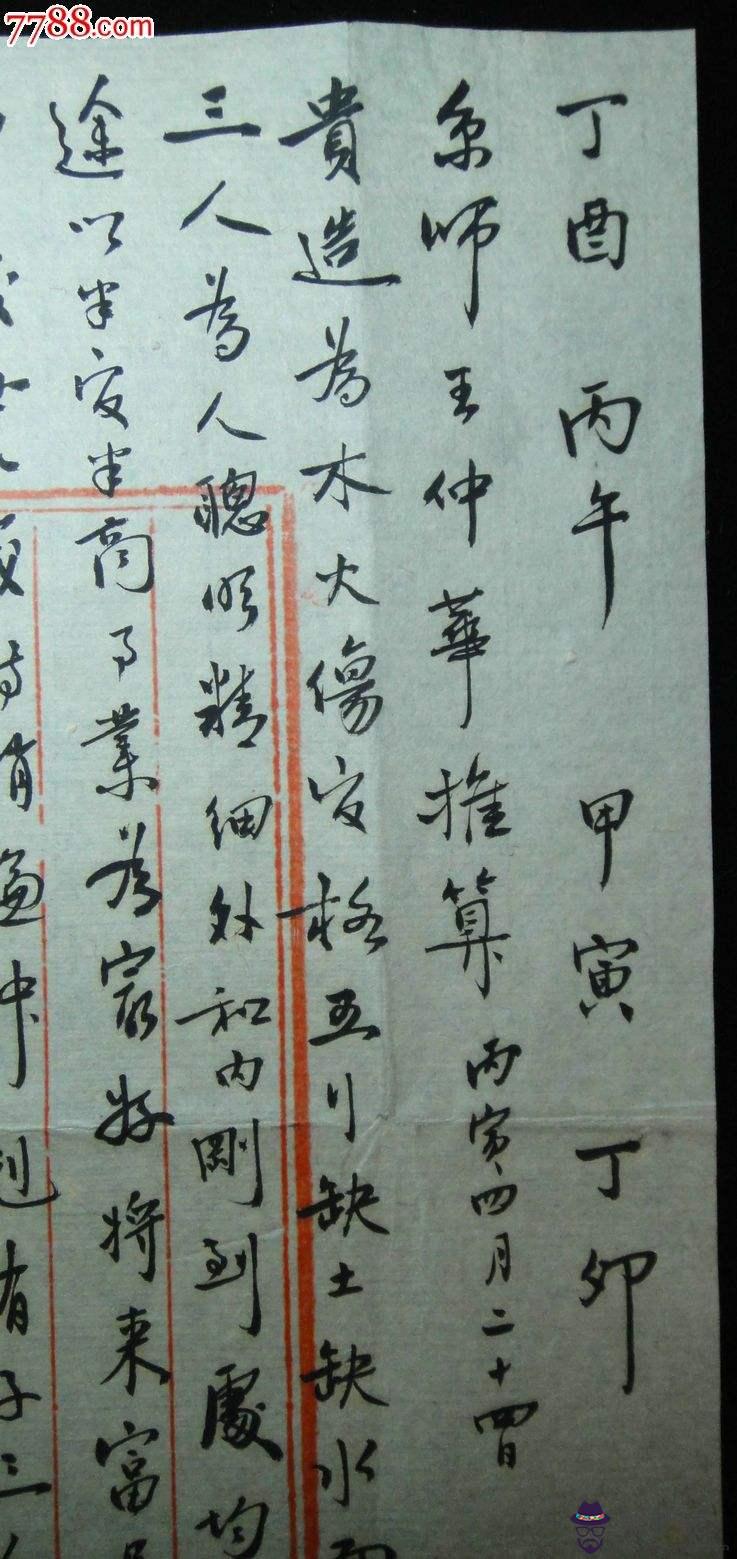 7788.com
丁酉 丙午 甲寅 丁卯
京师王仲華推算 丙寅四月二十四日
貴造為木火傷官格五行缺土缺水而
三人為人聰明精细外和内剛到處均
途以半官半商事業為最好將来富
有子三